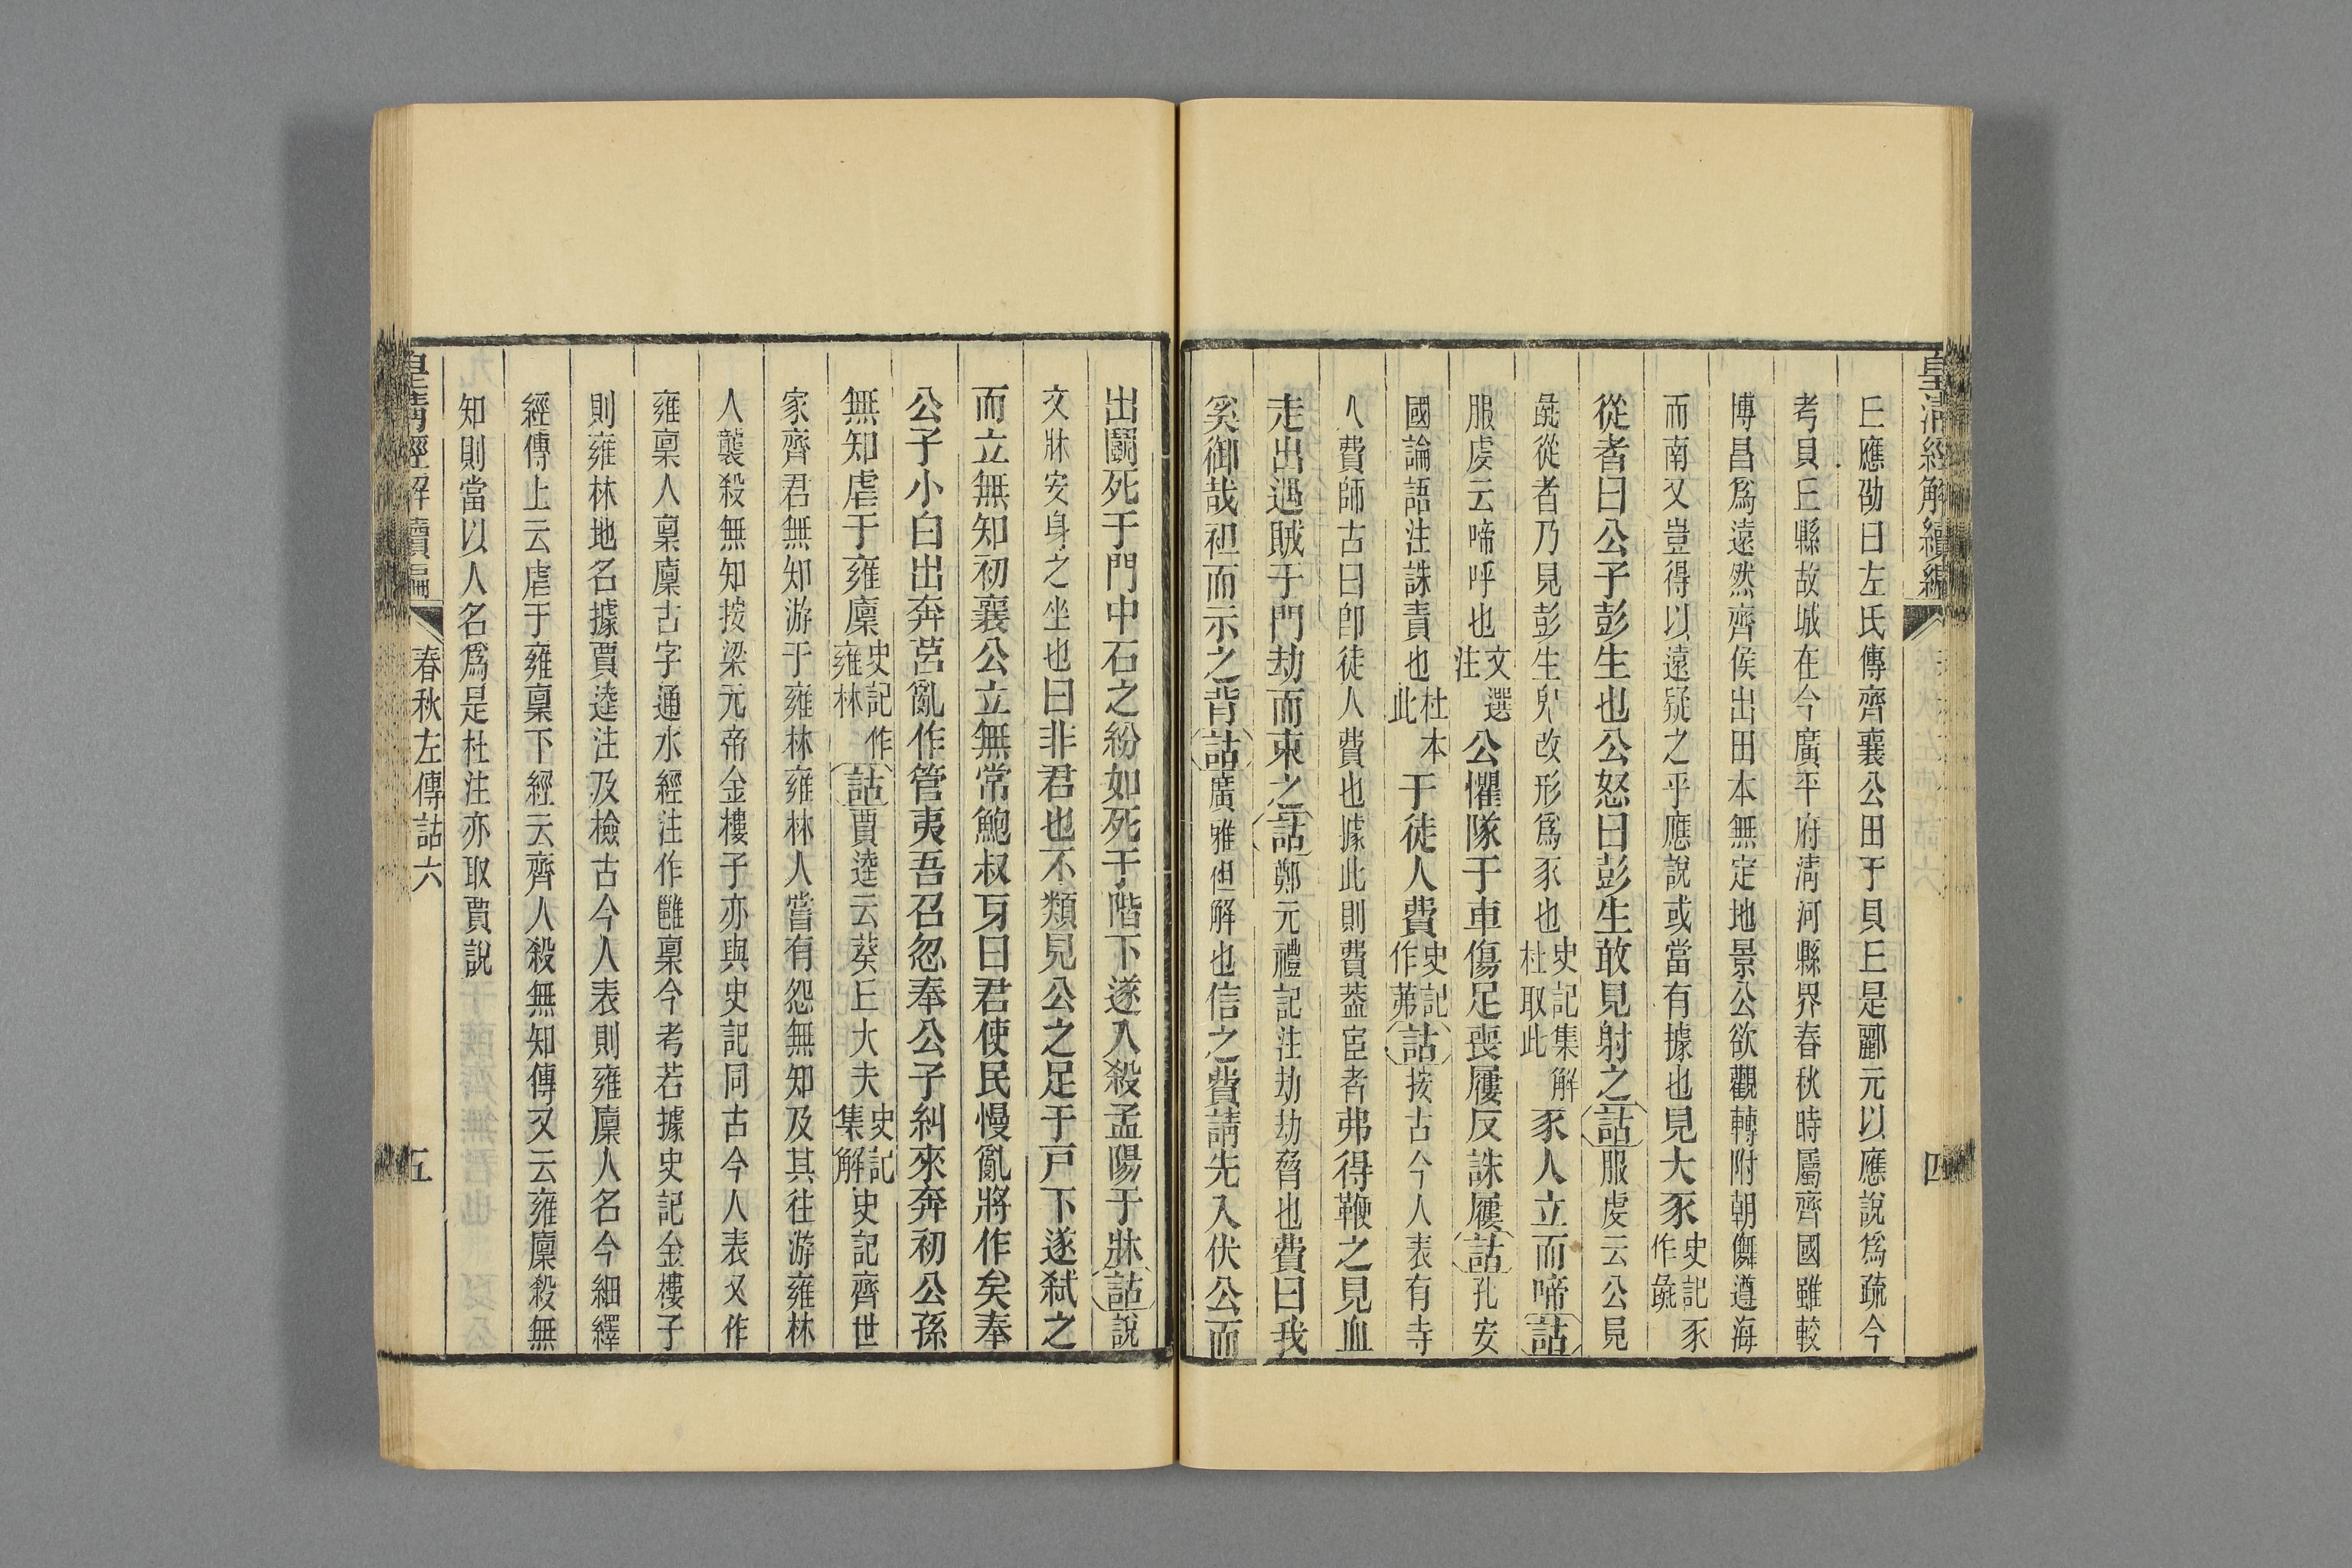 皇清經解續編
四
𠀉應劭曰左氏傳齊襄公田于貝𠀉是酈元以應說爲疏今
考貝𠀉縣故城在今廣平府淸河縣界春秋時屬齊國雖較
博昌爲遠然齊侯出田本無定地景公欲觀轉附朝儛遵海
而南又豈得以遠疑之乎應說或當有據也見大豕史記豕作彘
從者曰公子彭生也公怒曰彭生敢見射之詁服虔云公見
彘從者乃見彭生鬼改形爲豕也史記集解杜取此豕人立而啼詁
服虔云啼呼也文選注公懼隊于車傷足喪屨反誅屨詁孔安
國論語注誅責也杜本此于徒人費史記作茀詁按古今人表有寺
人費師古曰卽徒人費也據此則費葢宦者弗得鞭之見血
走出遇賊于門劫而束之詁鄭元禮記注劫劫脅也費曰我
奚御哉袒而示之背詁廣雅但解也信之費請先入伏公而
出鬭死于門中石之紛如死于階下遂入殺孟陽于牀詁說
文牀安身之坐也曰非君也不類見公之足于戸下遂弑之
而立無知初襄公立無常鮑叔牙曰君使民慢亂將作矣奉
公子小白出奔莒亂作管夷吾召忽奉公子糾來奔初公孫
無知虐于雍廩史記作雍林詁賈逵云葵𠀉大夫史記集解史記齊世
家齊君無知游于雍林雍林人嘗有怨無知及其往游雍林
人襲殺無知按梁元帝金樓子亦與史記同古今人表又作
雍稟人稟廩古字通水經注作雝稟今考若據史記金樓子
則雍林地名據賈逵注及檢古今人表則雍廩人名今細繹
經傳上云虐于雍稟下經云齊人殺無知傳又云雍廩殺無
知則當以人名爲是杜注亦取賈說
皇淸經解續編
春秋左傳詁六
五